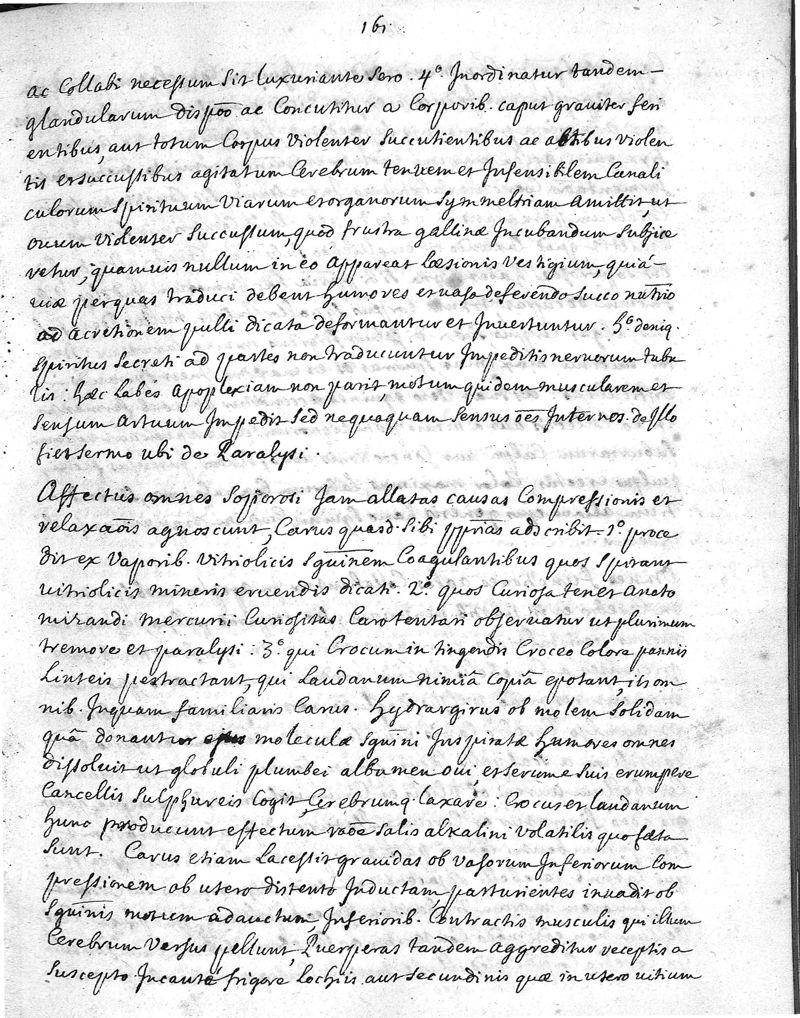 161
ac Collabi necessum sit luxuriante sero. 4° Inordinatur tandem
glandularum dispōō ac Concutitur a Corporib. caput graviter feri
entibus, aut totum Corpus violenter succutientibus ac violen
tis et succussibus agitatum Cerebrum tenuem et Insensibilem Canali
culorum spirituum viarum et organorum symmetriam Amittit, ut
ovum violenter succussum, quod frustra gallinæ Incubandum Subjice
retur, quamvis nullum in eo Appareat Læsionis vestigium, quiâ
viæ per quas traduci debent humores et vasa deferendo succo nutrio
ad Acretionem pulli dicata deformantur et Invertuntur. 5° deniq.
spiritus Secreti ad partes non traducuntur Impeditis nervorum tubu
lis: hæc Labés Apoplexiam non parit, motum quidem muscularem et
sensum Artuum Impedit sed nequaquam sensus ōēs Internos. de Illo
fiet sermo ubi de Paralysi.
Affectus omnes Soporosi Jam allatas causas Compressionis et
relaxaōis agnoscunt, Carus quasd. sibi pprias adscribit. 1° proce
dit ex Vaporib. vitriolicis sguinem Coagulantibus quos spirant
vitriolicis mineris eruendis dicati. 2° quos Curiosa tenet Anato
mizandi mercurii Curiositas Caro tentari observatur ut plurimum
tremore et paralysi: 3° qui Crocum in tingendis Croceo Colore pannis
Linteis pertractant, qui Laudanum nimiâ Copiâ epotant, iis om
nib. Inquam familiaris Carus. Hydrargirus ob molem Solidam
quâ donantur moleculæ sguini Inspiratæ humores omnes
dissolvit ut globuli plumbei albumen ovi, et serum e suis erumpere
Cancellis sulphureis Cogit, Cerebrumq. laxare: Crocus et laudanum
hunc producunt effectum raōe salis alkalini volatilis quo fæta
sunt. Carus etiam Lacessit gravidas ob vasorum Inferiorum Com
pressionem ab utero distento Inductam, parturientes invadit ob
sguinis motum adauctum, Inferiorib. Contractis musculis qui illum
Cerebrum versus pellunt, Puerperas tandem Aggreditur receptis a
suscepto Incaute frigore Lochiis aut secundinis quæ in utero vitium